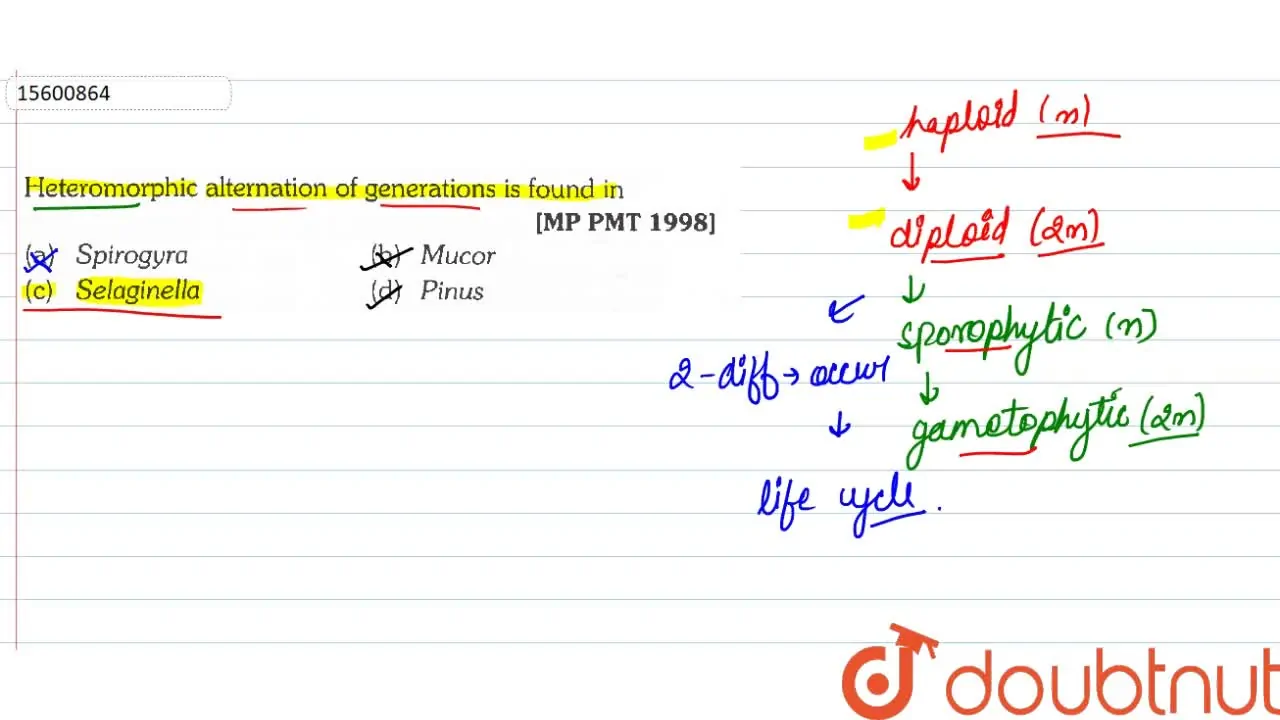 15600864
Heteromorphic alternation of generations is found in
[MP PMT 1998]
(a) Spirogyra (b) Mucor
(c) Selaginella (d) Pinus
haploid (n)
↓
diploid (2n)
↓
sporophytic (n)
↓
gametophytic (2n)
↙
2-diff → occur
↓
life cycle.
doubtnut